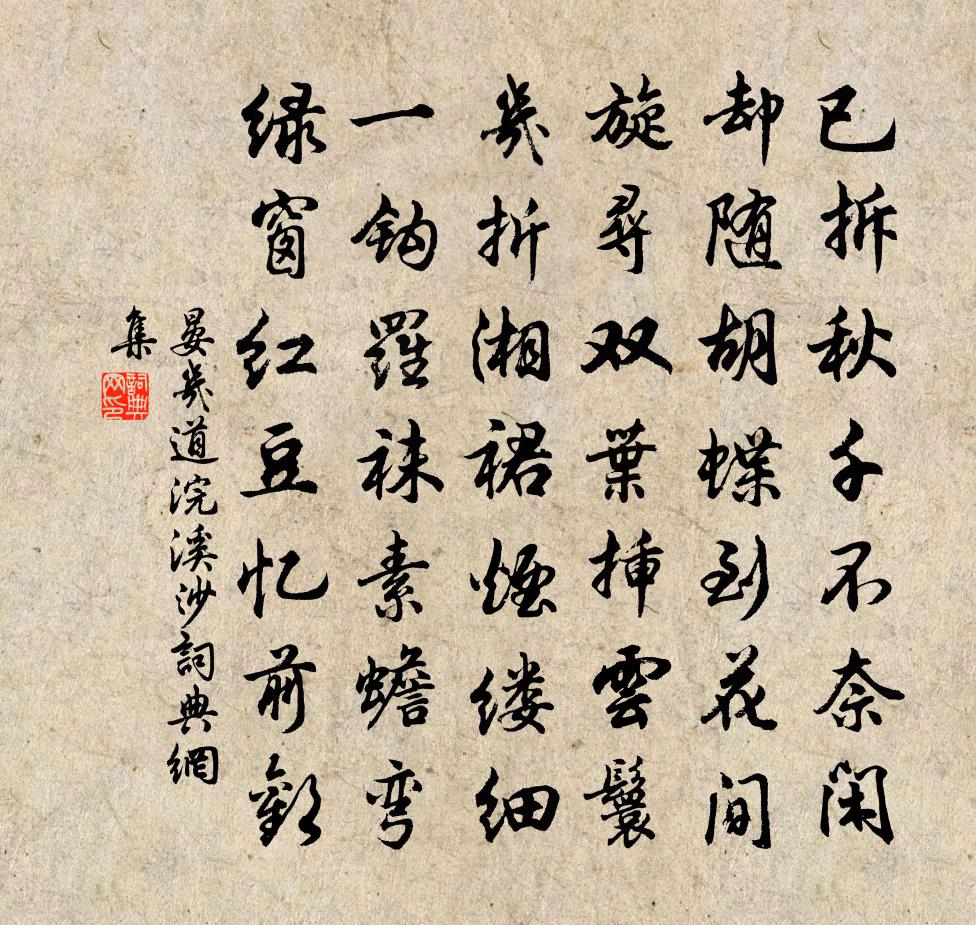 已拆秋千不奈闲
却随胡蝶到花间
旋寻双葉插雲鬟
幾折湘裙煙缕细
一钩羅袜素蟾弯
绿窗红豆忆前歡
晏幾道浣溪沙詞典網
集
詞典
网印